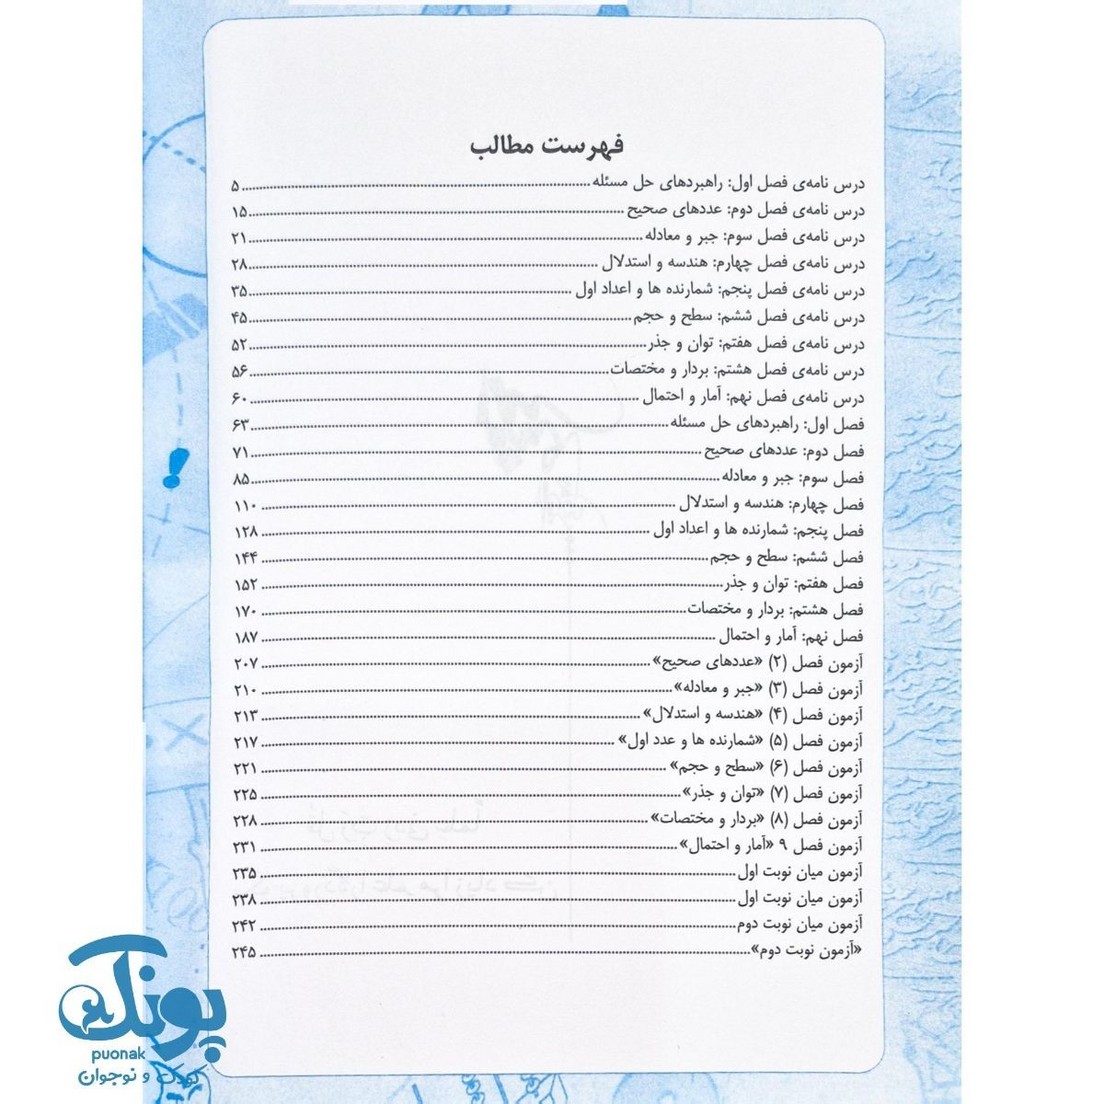 فهرست مطالب
درس نامه‌ی فصل اول: راهبردهای حل مسئله ........ ۵
درس نامه‌ی فصل دوم: عددهای صحیح ........ ۱۵
درس نامه‌ی فصل سوم: جبر و معادله ........ ۲۱
درس نامه‌ی فصل چهارم: هندسه و استدلال ........ ۲۸
درس نامه‌ی فصل پنجم: شمارنده ها و اعداد اول ........ ۳۵
درس نامه‌ی فصل ششم: سطح و حجم ........ ۴۵
درس نامه‌ی فصل هفتم: توان و جذر ........ ۵۲
درس نامه‌ی فصل هشتم: بردار و مختصات ........ ۵۶
درس نامه‌ی فصل نهم: آمار و احتمال ........ ۶۰
فصل اول: راهبردهای حل مسئله ........ ۶۳
فصل دوم: عددهای صحیح ........ ۷۱
فصل سوم: جبر و معادله ........ ۸۵
فصل چهارم: هندسه و استدلال ........ ۱۱۰
فصل پنجم: شمارنده ها و اعداد اول ........ ۱۲۸
فصل ششم: سطح و حجم ........ ۱۴۴
فصل هفتم: توان و جذر ........ ۱۵۲
فصل هشتم: بردار و مختصات ........ ۱۷۰
فصل نهم: آمار و احتمال ........ ۱۸۷
آزمون فصل (۲) «عددهای صحیح» ........ ۲۰۷
آزمون فصل (۳) «جبر و معادله» ........ ۲۱۰
آزمون فصل (۴) «هندسه و استدلال» ........ ۲۱۳
آزمون فصل (۵) «شمارنده ها و عدد اول» ........ ۲۱۷
آزمون فصل (۶) «سطح و حجم» ........ ۲۲۱
آزمون فصل (۷) «توان و جذر» ........ ۲۲۵
آزمون فصل (۸) «بردار و مختصات» ........ ۲۲۸
آزمون فصل ۹ «آمار و احتمال» ........ ۲۳۱
آزمون میان نوبت اول ........ ۲۳۵
آزمون میان نوبت اول ........ ۲۳۸
آزمون میان نوبت دوم ........ ۲۴۲
«آزمون نوبت دوم» ........ ۲۴۵
پونک
puonak
کودک و نوجوان